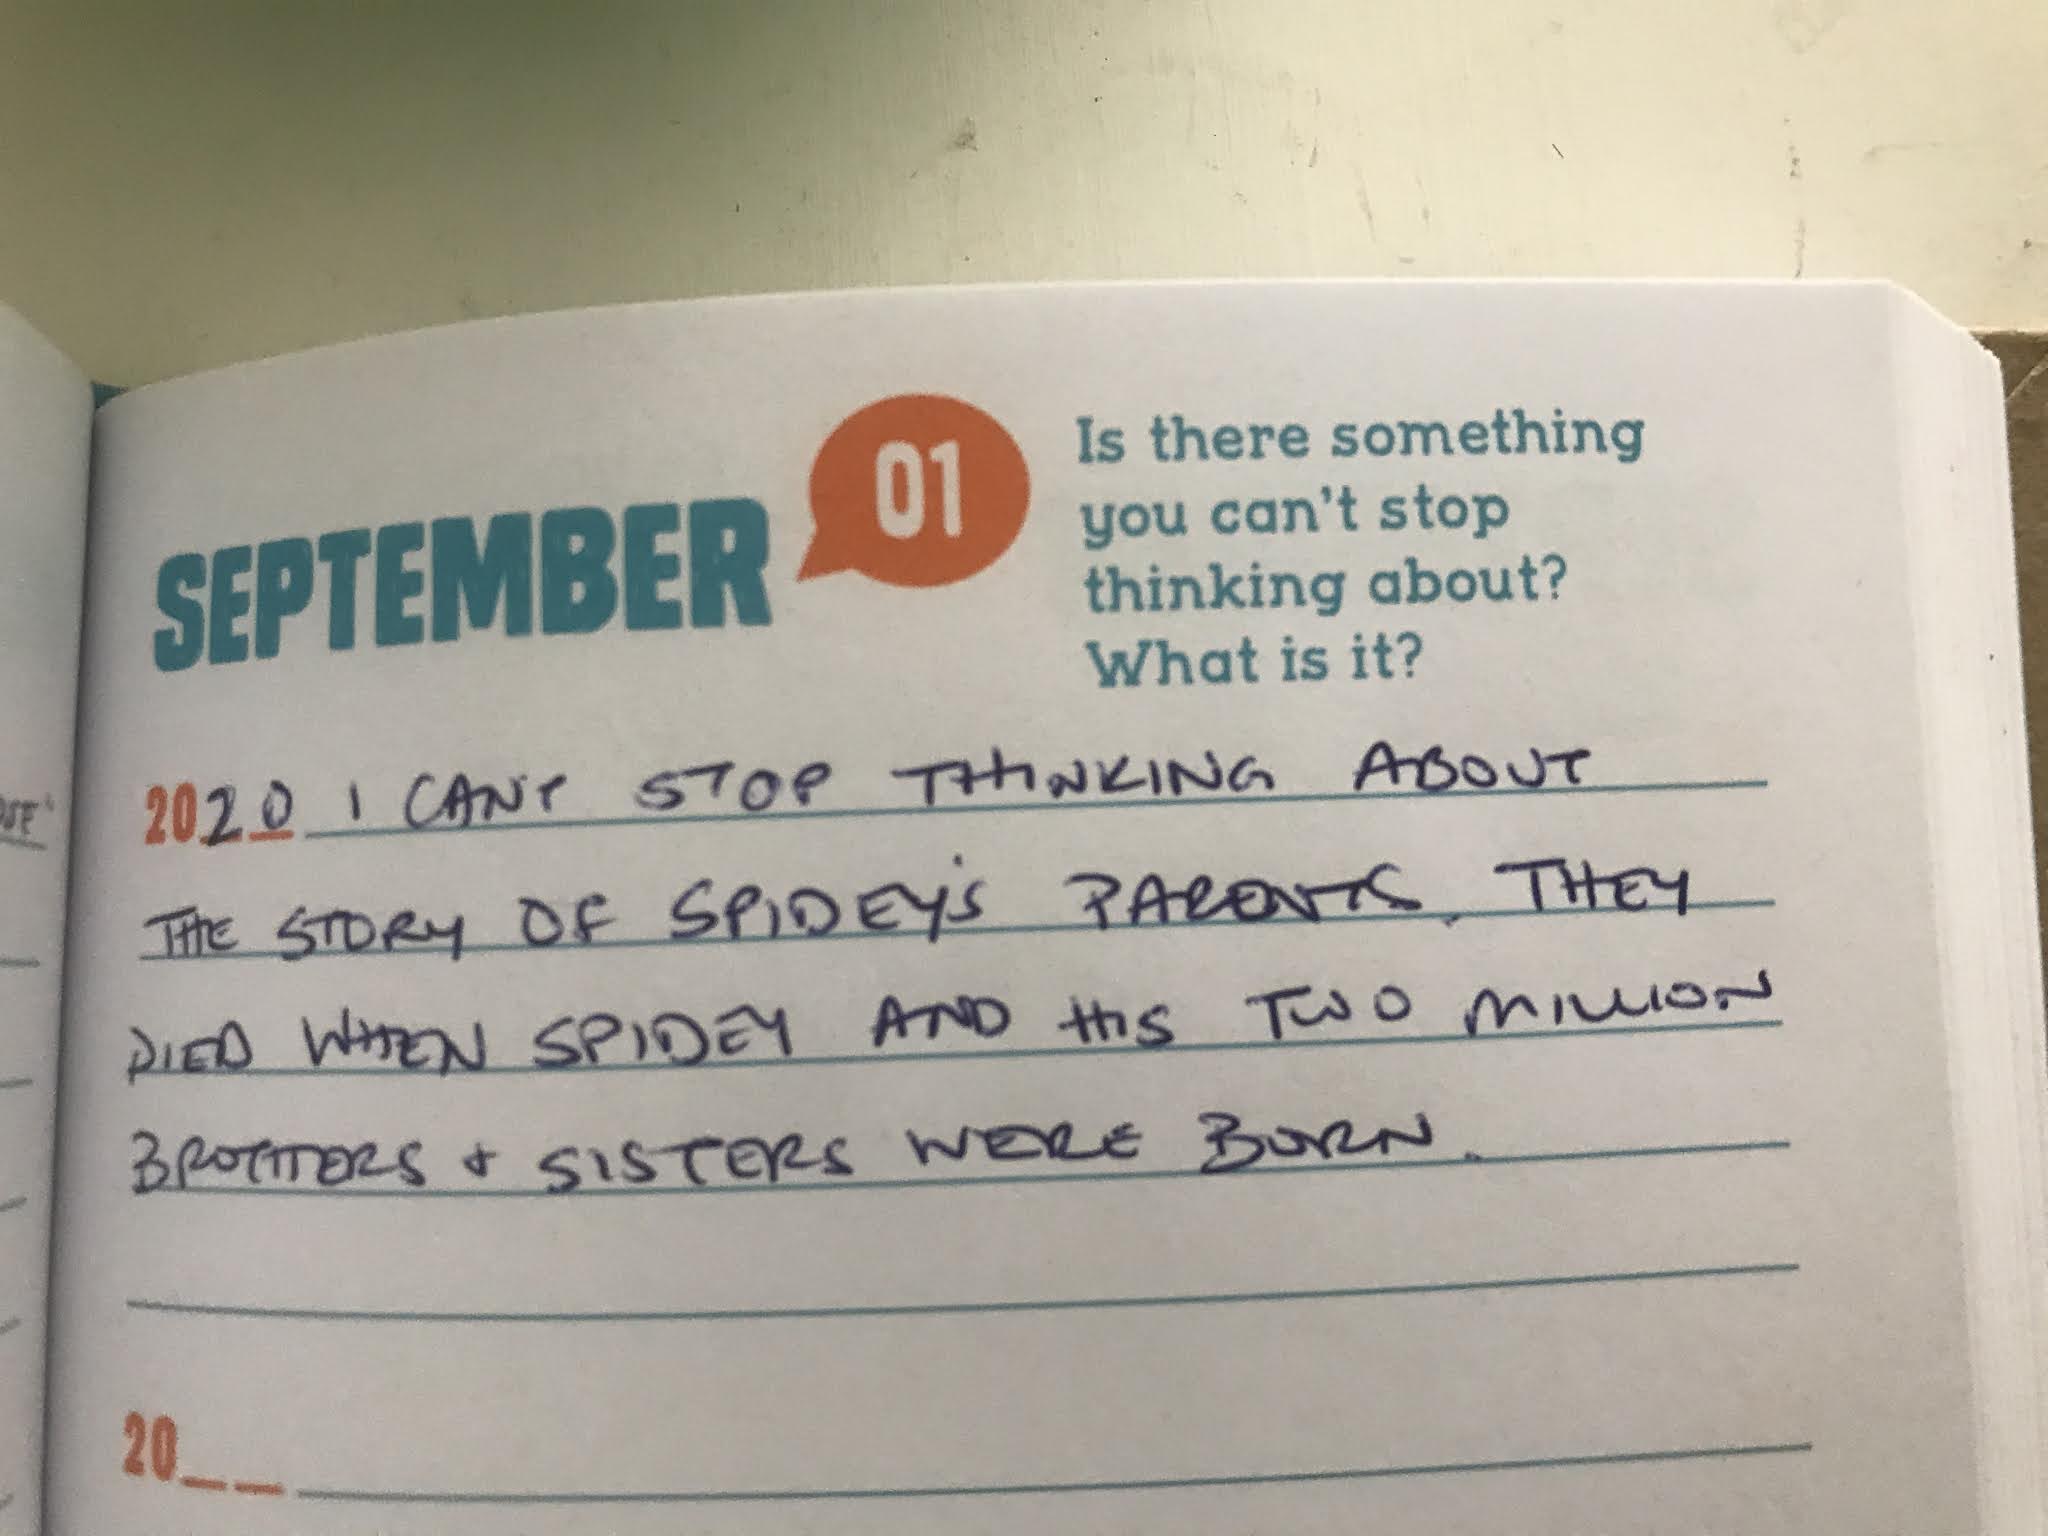 SEPTEMBER
01
Is there something
you can't stop
thinking about?
What is it?
2020 I CAN'T STOP THINKING ABOUT
THE STORY OF SPIDEY'S PARENTS. THEY
DIED WHEN SPIDEY AND HIS TWO MILLION
BROTHERS + SISTERS WERE BORN.
20__